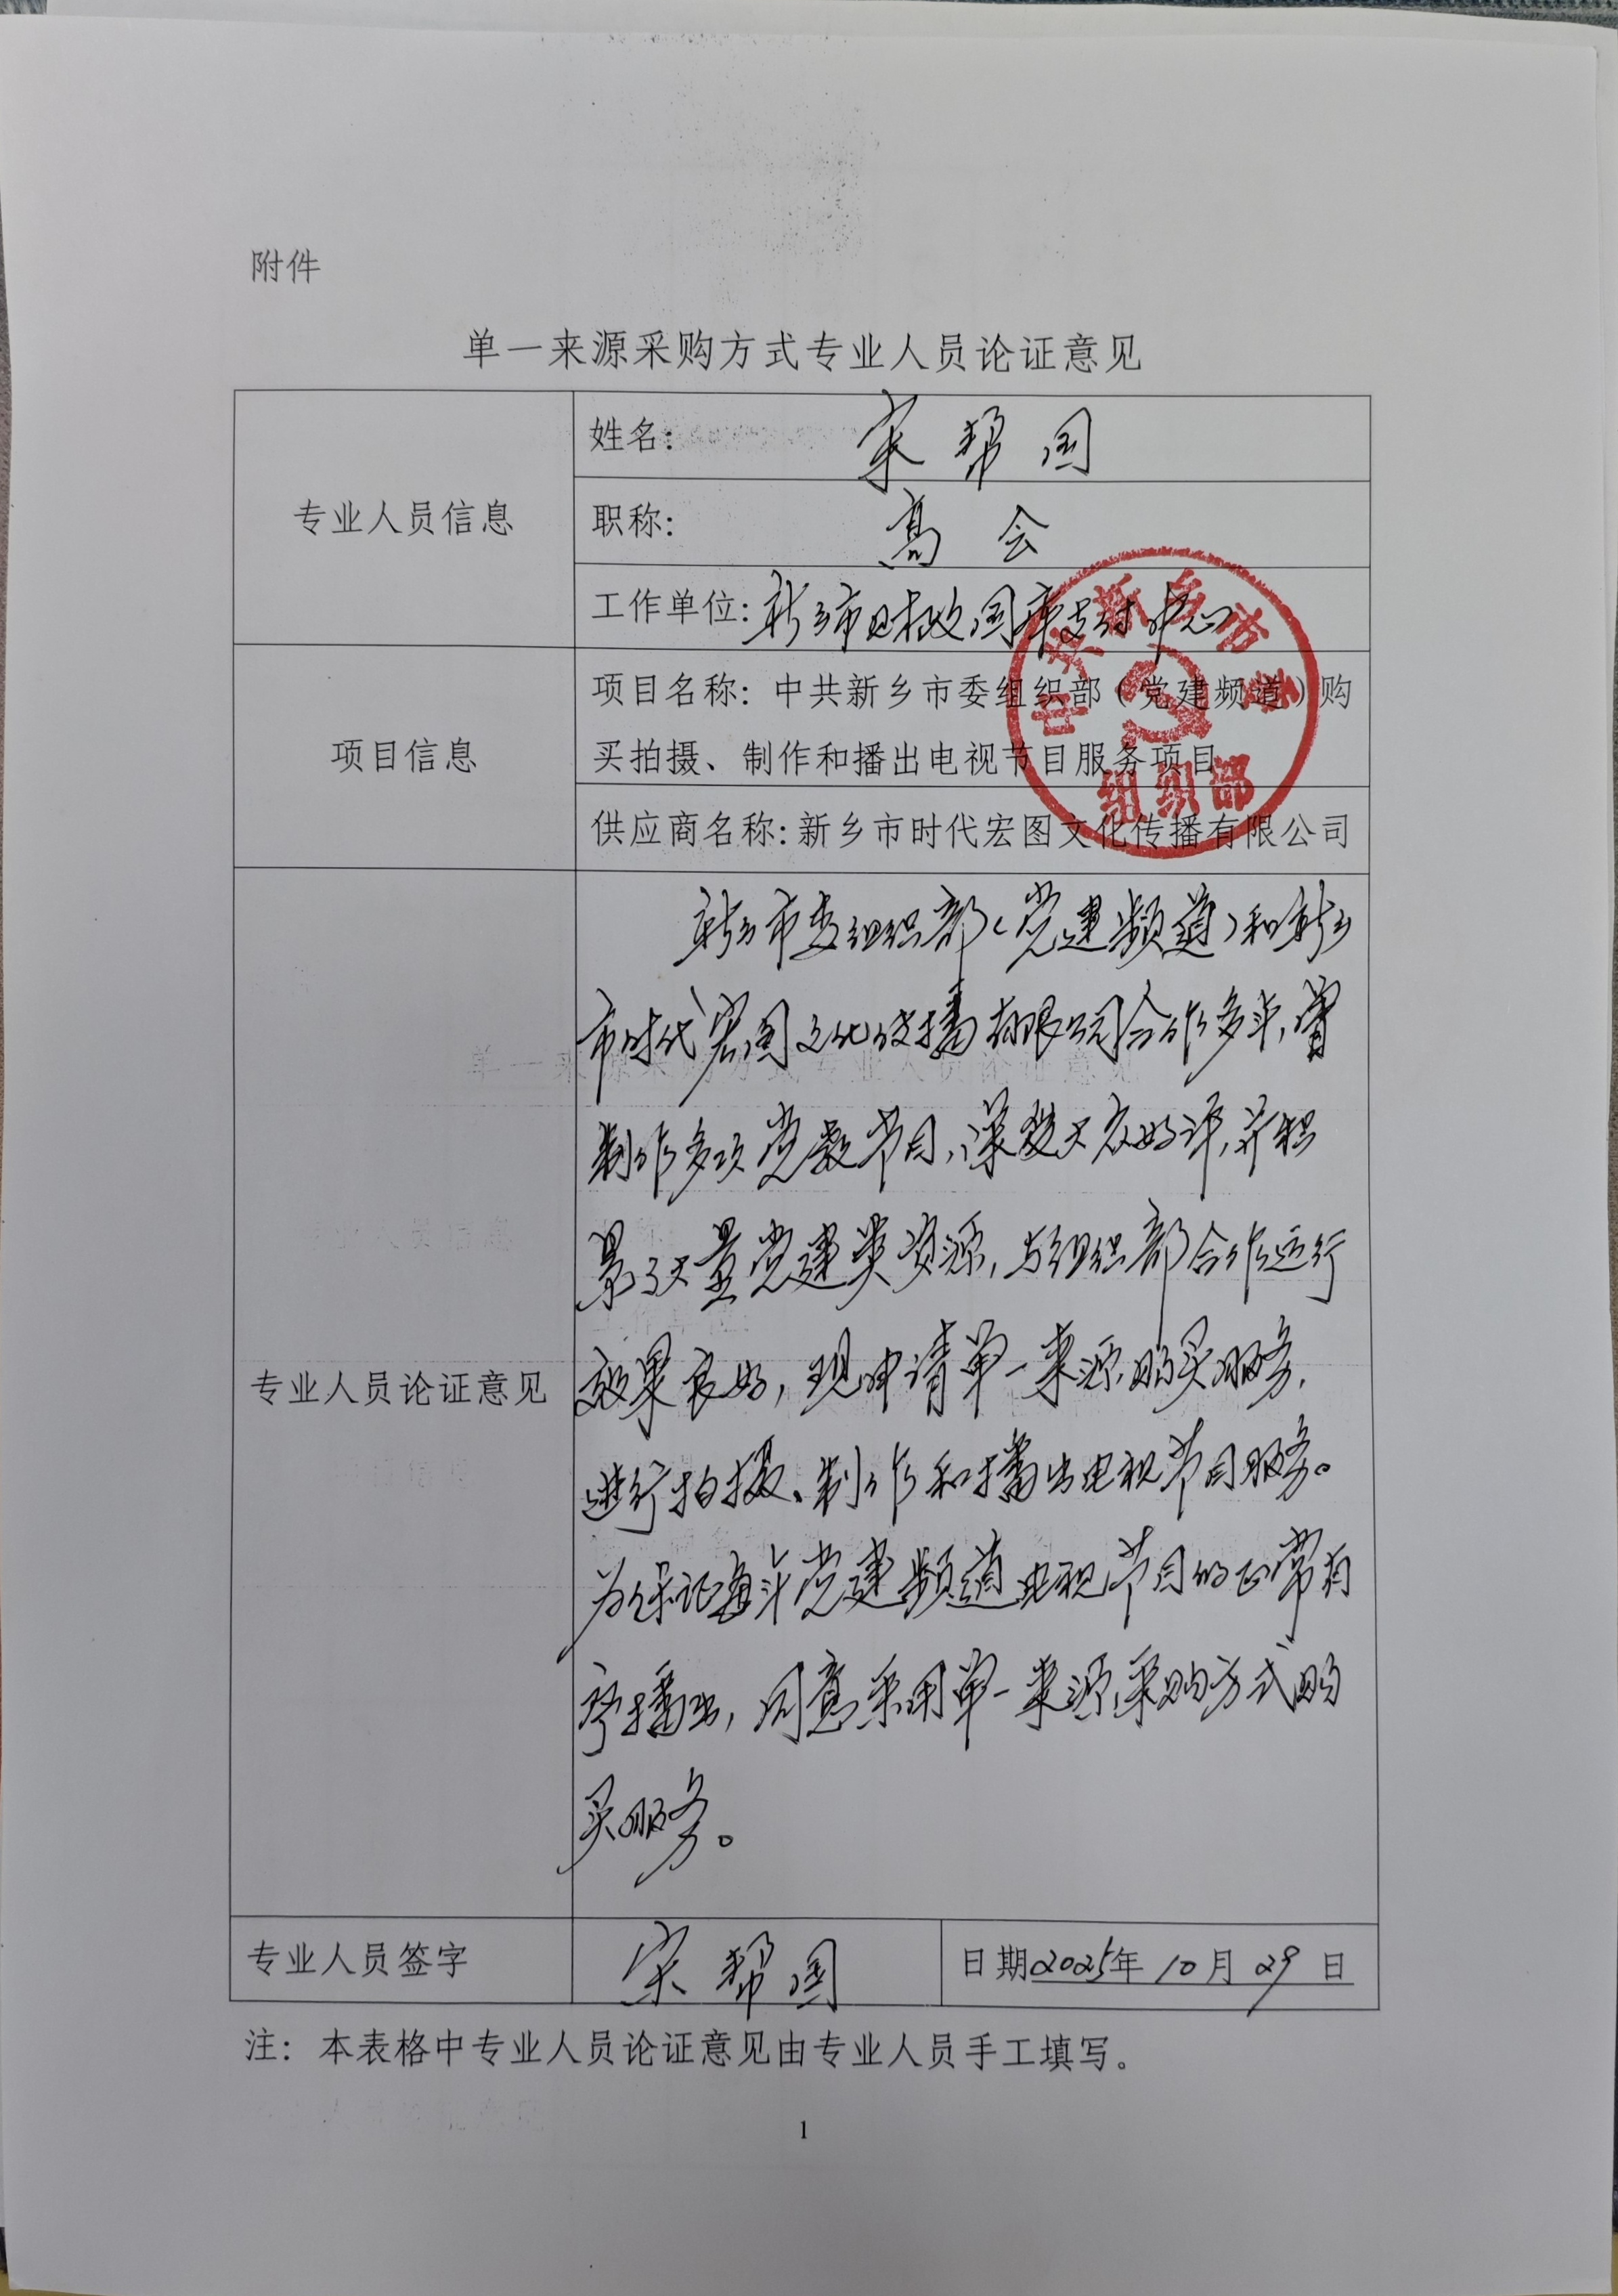 附件
单一来源采购方式专业人员论证意见
专业人员信息
姓名： 宋帮国
职称： 高会
工作单位：新乡市财政国库支付中心
项目信息
项目名称：中共新乡市委组织部（党建频道）购
买拍摄、制作和播出电视节目服务项目
供应商名称：新乡市时代宏图文化传播有限公司
中共新乡市委
组织部
专业人员论证意见
新乡市委组织部（党建频道）和新乡
市时代宏图文化传播有限公司合作多年，曾
制作多项党教节目，深受大众好评，并积
累了大量党建类资源，与组织部合作运行
效果良好，现申请单一来源购买服务，
进行拍摄、制作和播出电视节目服务。
为保证每年党建频道电视节目的正常有
序播出，同意采用单一来源采购方式购
买服务。
专业人员签字
宋帮国
日期2025年10月29日
注：本表格中专业人员论证意见由专业人员手工填写。
1